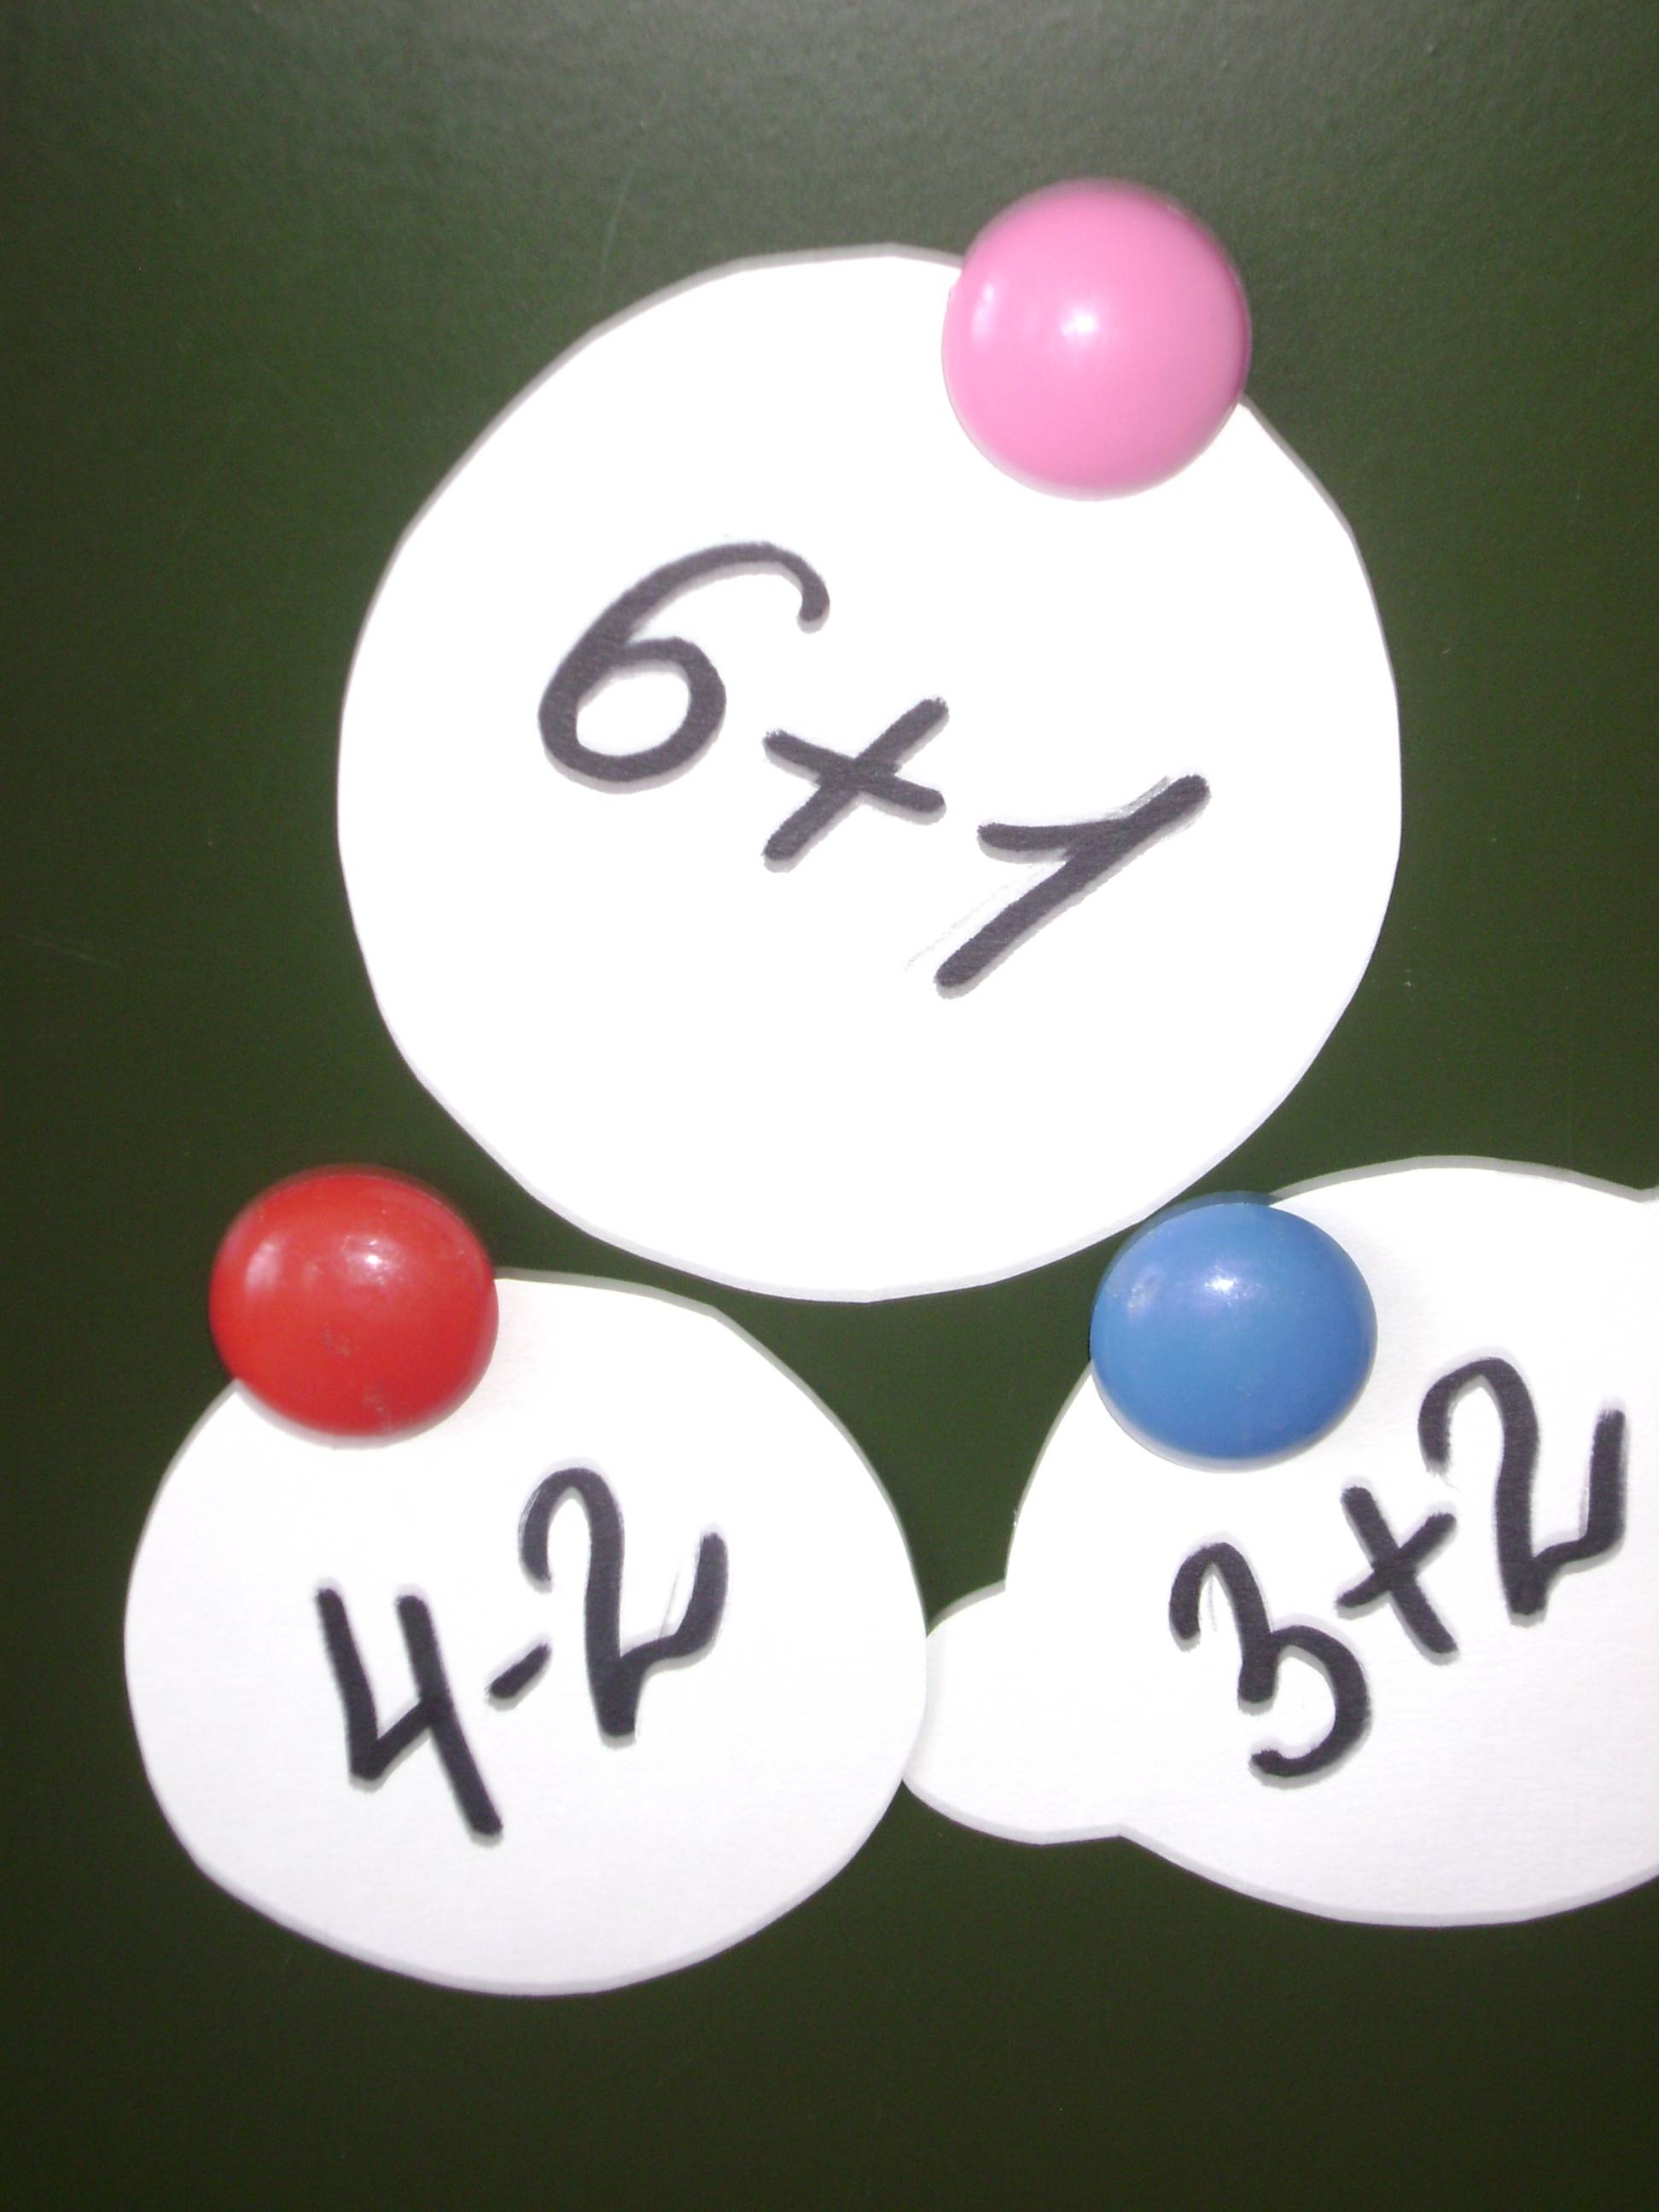 6+1
4-2
3+2